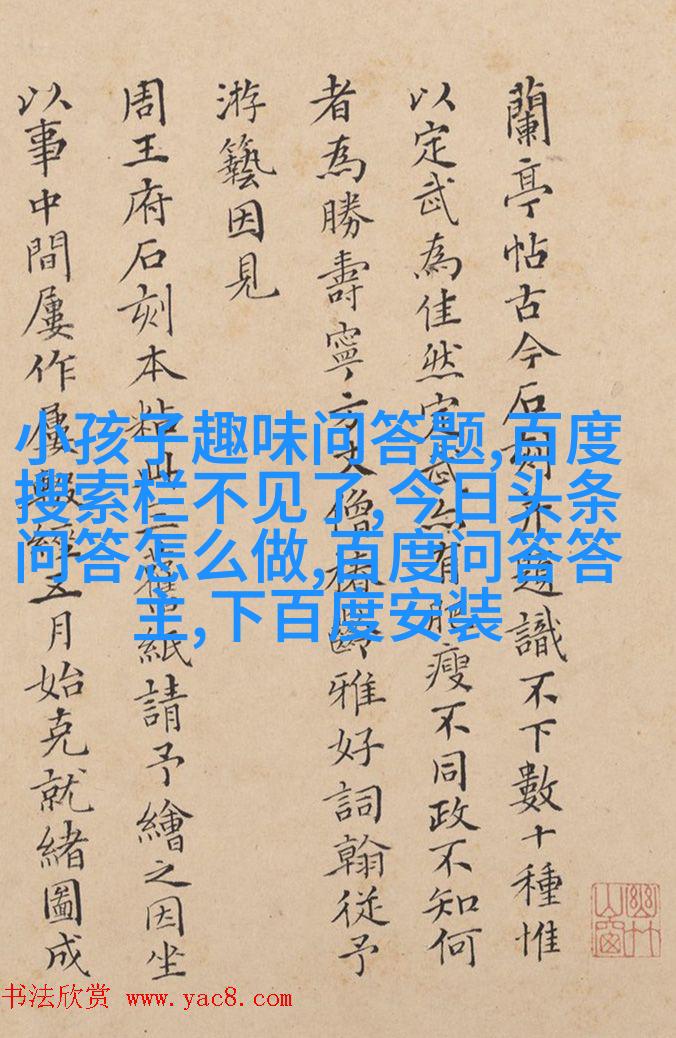 蘭亭帖古今石刻并題識不下數十種惟
以定武為佳然定武亦有肥瘦不同政不知何
者為勝壽寧方丈僧椿齡雅好詞翰從予
游藝因見
周王府石刻本粘此二舊紙請予繪之因坐
以事中間屢作屢輟經五月始克就緒圖成
小孩子趣味问答题,百度
搜索栏不见了,今日头条
问答怎么做,百度问答答
主,下百度安装
幽竹山窗
书法欣赏 www.yac8.com